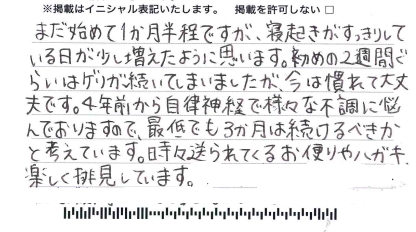 ※掲載はイニシャル表記いたします。　掲載を許可しない □
まだ始めて1か月半程ですが、寝起きがすっきりして
いる日が少し増えたように思います。初めの2週間ぐ
らいはゲリが続いてしまいましたが、今は慣れて大丈
夫です。4年前から自律神経で様々な不調に悩
んでおりますので、最低でも3か月は続けるべきか
と考えています。時々送られてくるお便りやハガキ、
楽しく拝見しています。